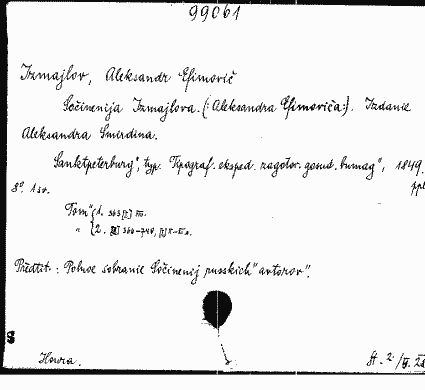 99061
Izmajlov, Aleksandr Efimovič
Sočinenija Izmajlova (:Aleksandra Efimoviča:). Izdanie
Aleksandra Smirdina.
Sanktpeterburg", typ. Tipograf. eksped. zagotov. gosud. bumag", 1849.
8° 1 sv.
Tom" {1. 363
" {2. 366-748,
Předtit.: Polnoe sobranie Sočinenij russkich" avtorov".
S
Howra. St. 2.